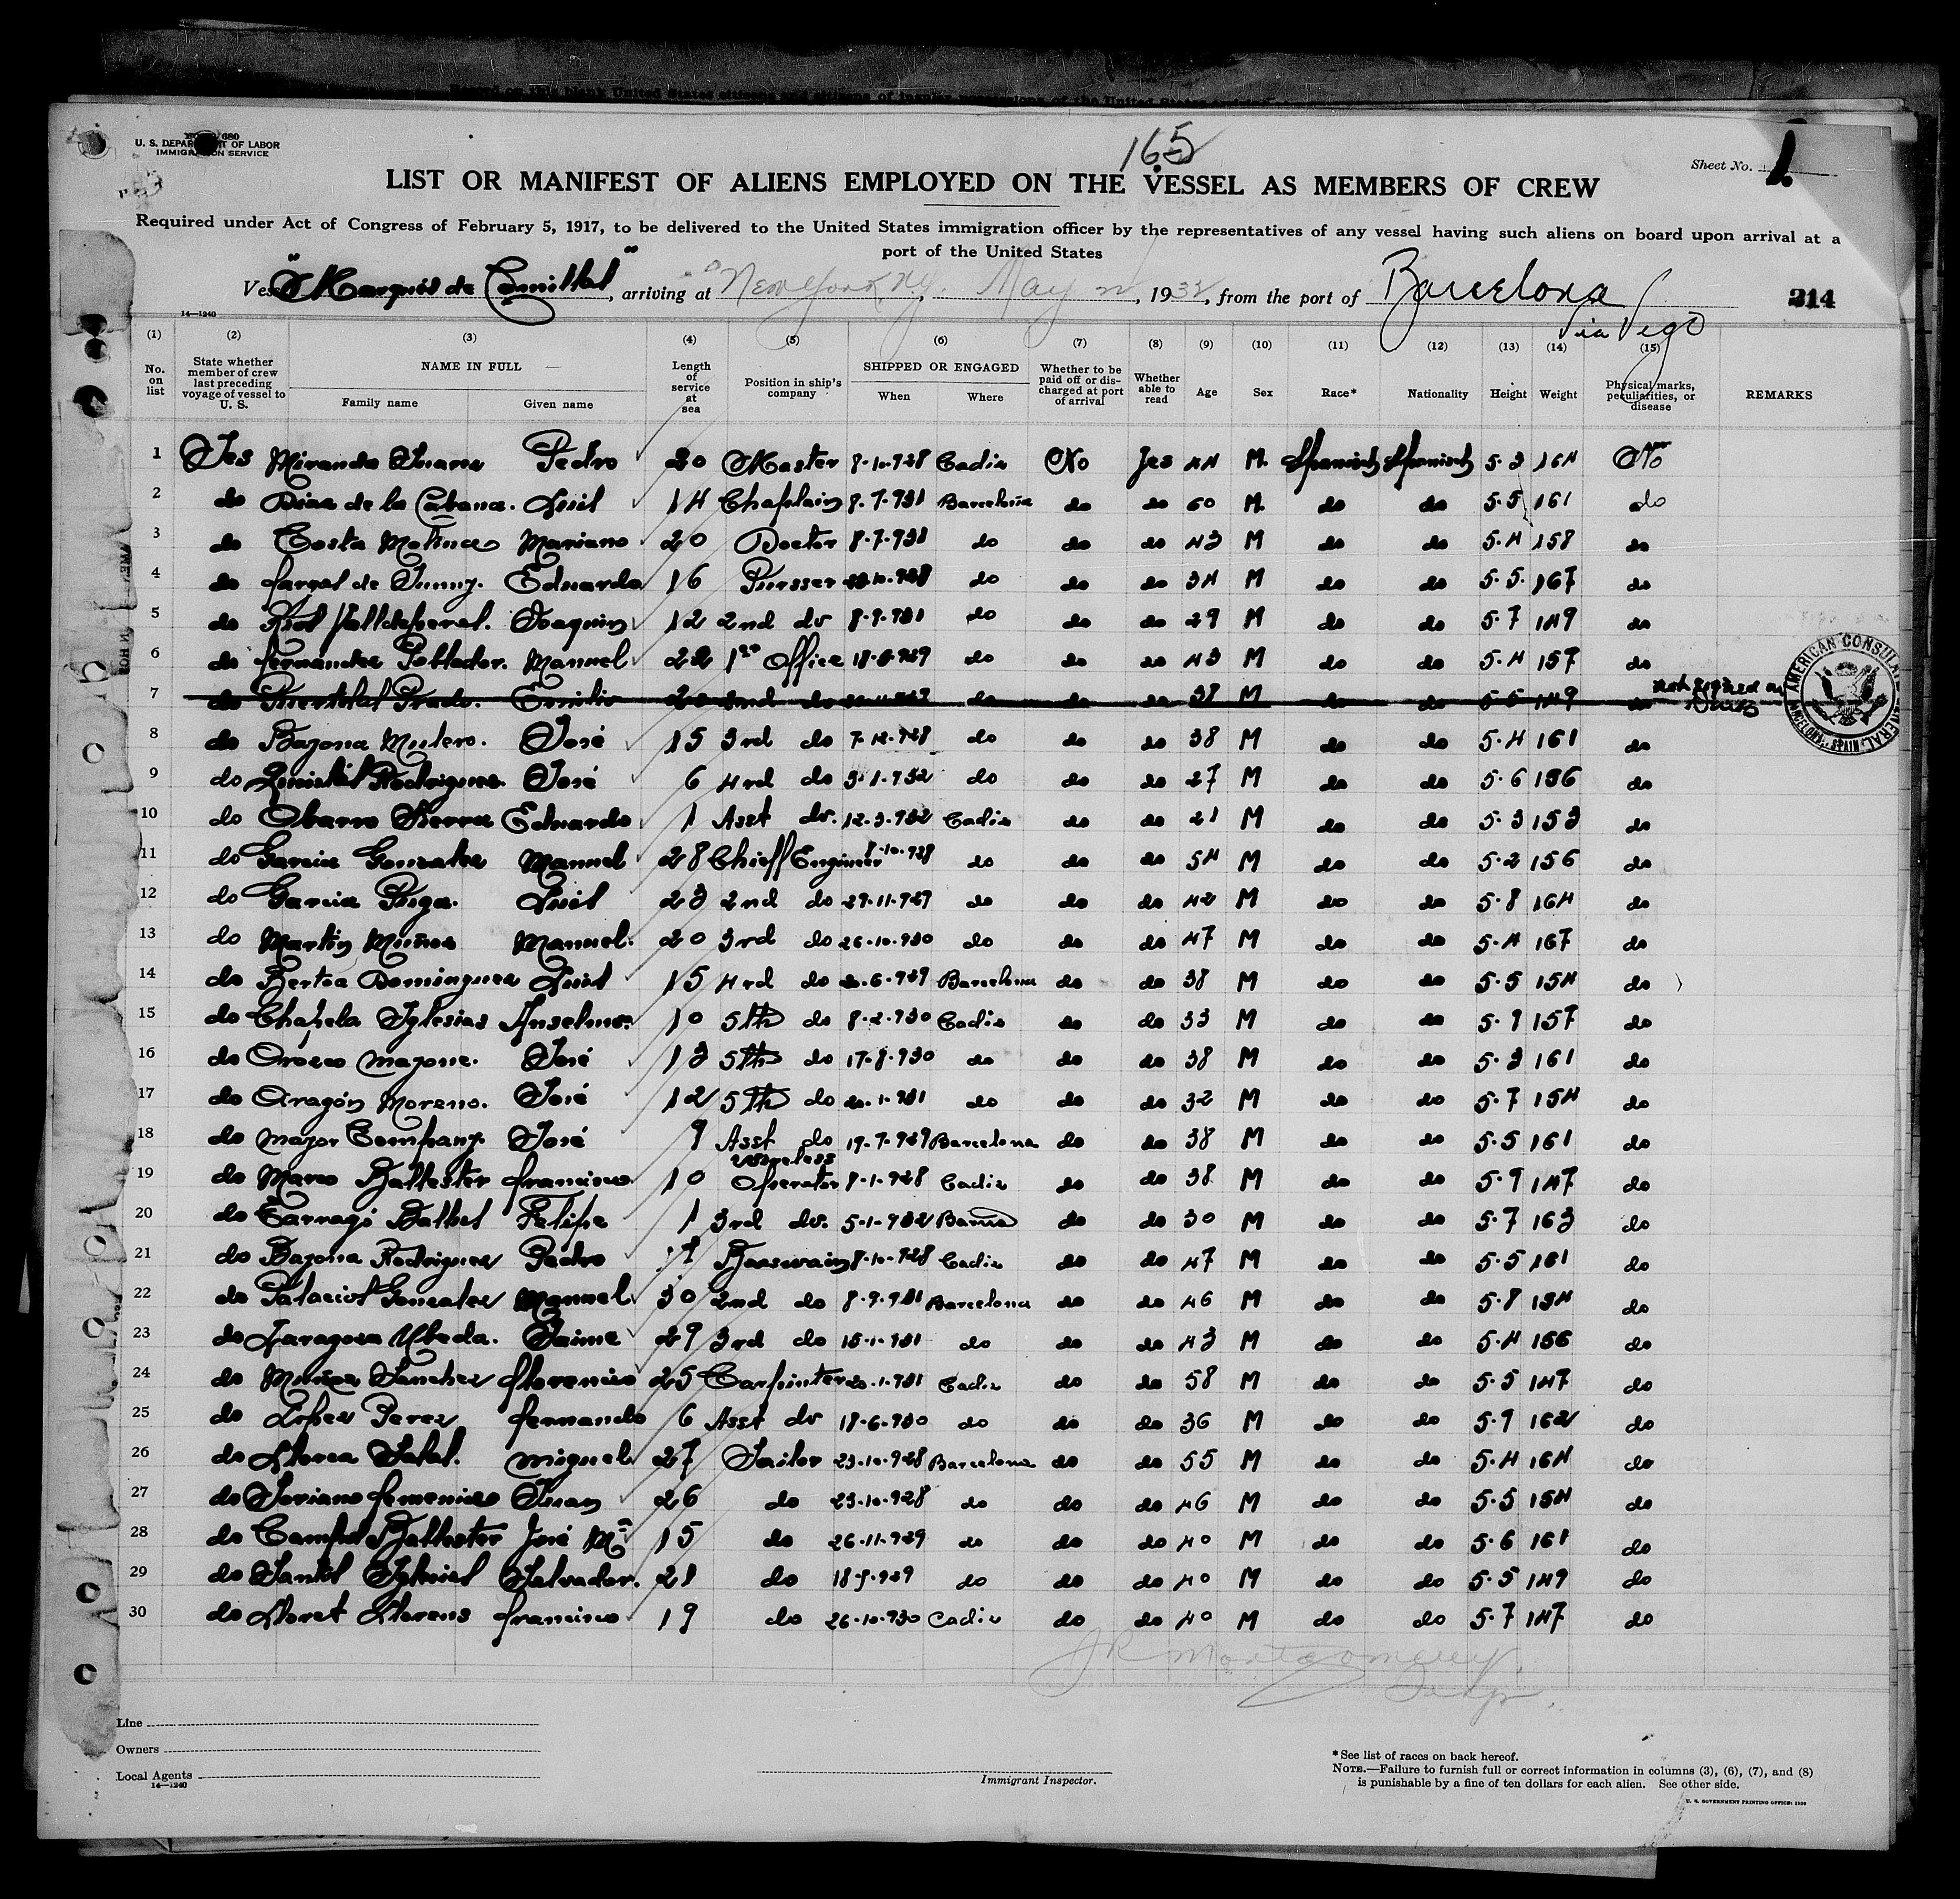 165
U. S. DEPARTMENT OF LABOR
IMMIGRATION SERVICE
Sheet No. 1.
LIST OR MANIFEST OF ALIENS EMPLOYED ON THE VESSEL AS MEMBERS OF CREW
Required under Act of Congress of February 5, 1917, to be delivered to the United States immigration officer by the representatives of any vessel having such aliens on board upon arrival at a
port of the United States
"Marqués de Comillas", arriving at New York, N.Y., May 2, 1932, from the port of Barcelona
via Vigo
214
14—1240
(1) (2) (3) (4) (5) (6) (7) (8) (9) (10) (11) (12) (13) (14) (15)
No. on list State whether member of crew last preceding voyage of vessel to U. S. NAME IN FULL Family name Given name Length of service at sea Position in ship's company SHIPPED OR ENGAGED When Where Whether to be paid off or discharged at port of arrival Whether able to read Age Sex Race* Nationality Height Weight Physical marks, peculiarities, or disease REMARKS
1 Yes Miranda Pedro 30 Master 8-10-928 Cadiz No Yes 44 M. Spanish Spanish 5.3 164 No
2 do Diaz de la Cabana. Luis 14 Chaplain 8-7-931 Barcelona do do 60 M. do do 5.5 161 do
3 do Costa Mariano 20 Doctor 8-7-931 do do do 43 M do do 5.4 158 do
4 do de Eduardo 16 Pursser 928 do do do 34 M do do 5.5. 167 do
5 do Joaquin 12 2nd do 8-9-931 do do do 29 M do do 5.7 149 do
6 do Fernandez Poblador. Manuel 22 1st Office 929 do do do 43 M do do 5.4 157 do
7 do Prado. Emilio 20 2nd do do do do 38 M do do 5.5 149 do not signed on
8 do Bazona Mulero. José 15 3rd do 7-12-928 do do do 38 M do do 5.4 161 do
9 do Rodriguez José 6 4rd do 932 do do do 27 M do do 5.6 156 do
10 do Sierra Eduardo 1 Asst do. 12-3-932 Cadiz do do 21 M do do 5.3 153 do
11 do Garcia Gonzalez Manuel 28 Chieff Engineer 8-10-928 do do do 54 M do do 5.2 156 do
12 do Garcia Puga. Luis 23 2nd do 29-11-929 do do do 42 M do do 5.8 164 do
13 do Martín Muñoz Manuel. 20 3rd do 26-10-930 do do do 47 M do do 5.4 167 do
14 do Bertoa Dominguez Luis 15 4rd do 929 Barcelona do do 38 M do do 5.5 154 do
15 do Chapela Iglesias Anselmo. 10 5th do 8-2-930 Cadiz do do 33 M do do 5.9 157 do
16 do Orozco José 13 5th do 17-8-930 do do do 38 M do do 5.3 161 do
17 do Aragón Moreno. José 12 5th do 931 do do do 32 M do do 5.7 154 do
18 do Mayor Company. José 9 Asst do 19-7-929 Barcelona do do 38 M do do 5.5 161 do
19 do Ballester Francisco 10 Wireless Operator 8-1-928 Cadiz do do 38 M do do 5.9 147 do
20 do Tarragó Felipe 1 3rd do. 5-1-932 Barna do do 30 M do do 5.7 163 do
21 do Bazona Rodriguez Pedro 8-10-928 Cadiz do do 47 M do do 5.5 161 do
22 do Palacios Gonzalez Manuel 30 2nd do 8-9-931 Barcelona do do 46 M do do 5.8 134 do
23 do Zaragoza Ubeda. Jaime 29 3rd do 931 do do do 43 M do do 5.4 156 do
24 do Sanchez Florencio 25 Carpinter 931 Cadiz do do 58 M do do 5.5 147 do
25 do Lopez Perez Fernando 6 Asst do 18-6-930 do do do 36 M do do 5.9 162 do
26 do Llorca Miguel 27 Sailor 23-10-928 Barcelona do do 55 M do do 5.4 164 do
27 do Soriano Femenias Juan 26 do 23-10-928 do do do 46 M do do 5.5 154 do
28 do Ballester José Mª 15 do 26-11-929 do do do 40 M do do 5.6 161 do
29 do Salvador. 21 do 929 do do do 40 M do do 5.5 149 do
30 do Lloret Llorens Francisco 19 do 26-10-930 Cadiz do do 40 M do do 5.7 147 do
AMERICAN CONSULATE GENERAL BARCELONA, SPAIN
JR Montgomery.
Line
Owners
Local Agents
14—1240
Immigrant Inspector.
*See list of races on back hereof.
NOTE.—Failure to furnish full or correct information in columns (3), (6), (7), and (8)
is punishable by a fine of ten dollars for each alien. See other side.
U. S. GOVERNMENT PRINTING OFFICE: 1930